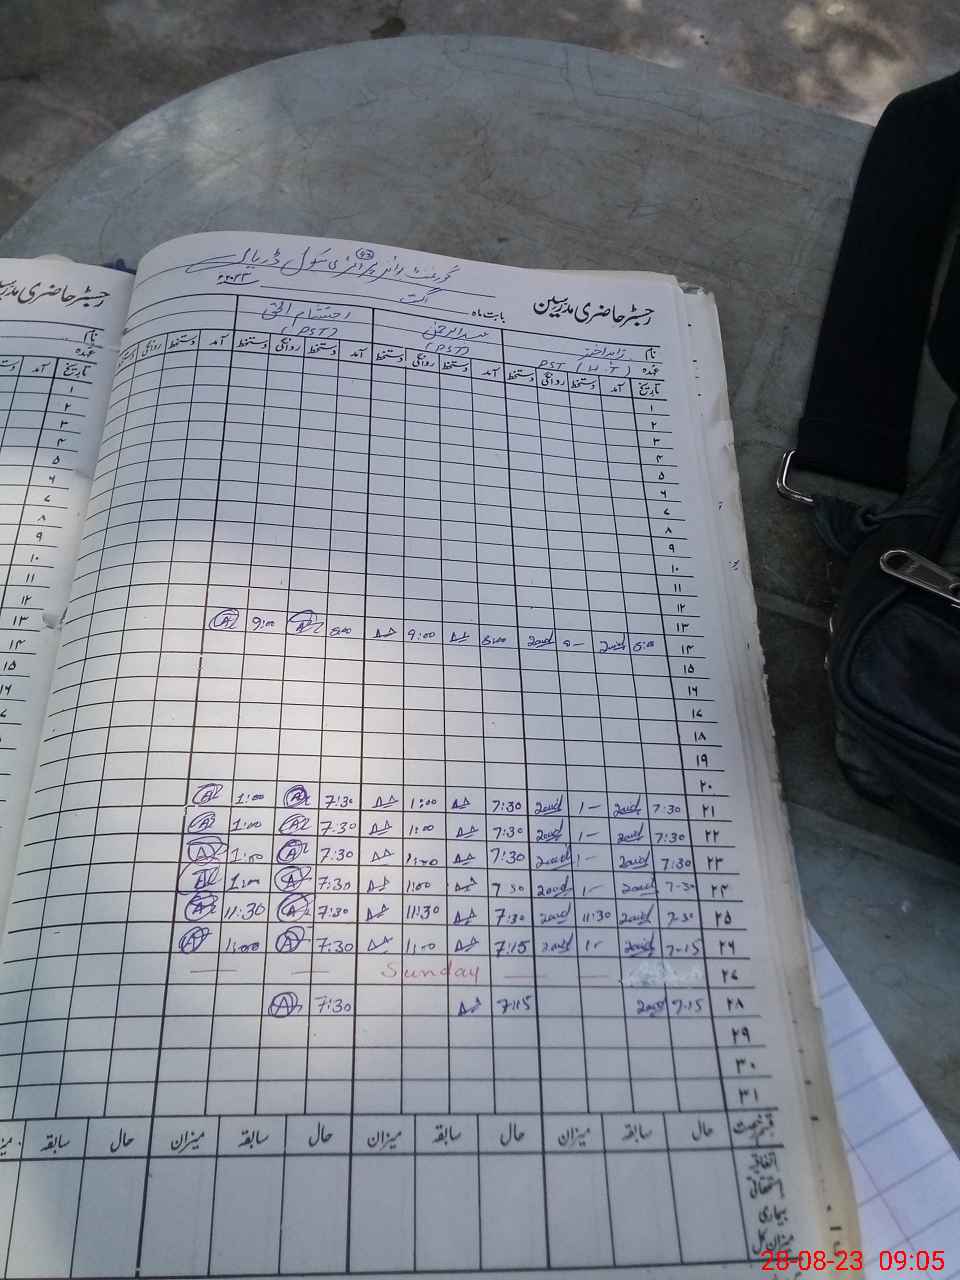 رجسٹر حاضری مدرسین
گورنمنٹ پرائمری سکول
بابت ماہ اگست
نام زاہد اختر عبدالرحمن احتشام الحق
عہدہ PST (H.T) (PST) (PST)
تاریخ آمد دستخط روانگی دستخط آمد دستخط روانگی دستخط آمد دستخط روانگی دستخط آمد دستخط روانگی دستخط
۱
۲
۳
۴
۵
۶
۷
۸
۹
۱۰
۱۱
۱۲
۱۳
۱۴ 8:00 9:00 8:00 9:00
۱۵
۱۶
۱۷
۱۸
۱۹
۲۰
۲۱ 7:30 1- 7:30 1:00 7:30 1:00
۲۲ 7:30 1- 7:30 1:00 7:30 1:00
۲۳ 7:30 1- 7:30 1:00 7:30 1:00
۲۴ 7-30 1- 7:30 1:00 7:30 1:00
۲۵ 7-30 11:30 7:30 11:30 7:30 11:30
۲۶ 7-15 1- 7:15 1:00 7:30 1:00
۲۷ Sunday
۲۸ 7-15 7:15 7:30
۲۹
۳۰
۳۱
قسم رخصت حال سابقہ میزان حال سابقہ میزان حال سابقہ میزان حال سابقہ
اتفاقیہ
استحقاقی
بیماری
میزان کل
رجسٹر حاضری مدرسین
نام
عہدہ
تاریخ آمد
۱
۲
۳
۴
۵
۶
۷
۸
۹
۱۰
۱۱
۱۲
۱۳
۱۴
۱۵
۱۶
28-08-23 09:05